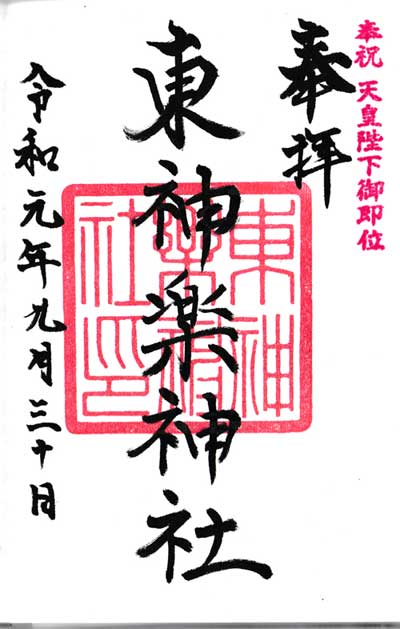 奉祝 天皇陛下御即位
奉拝
東神楽神社
令和元年九月三十日
東神
楽神
社印